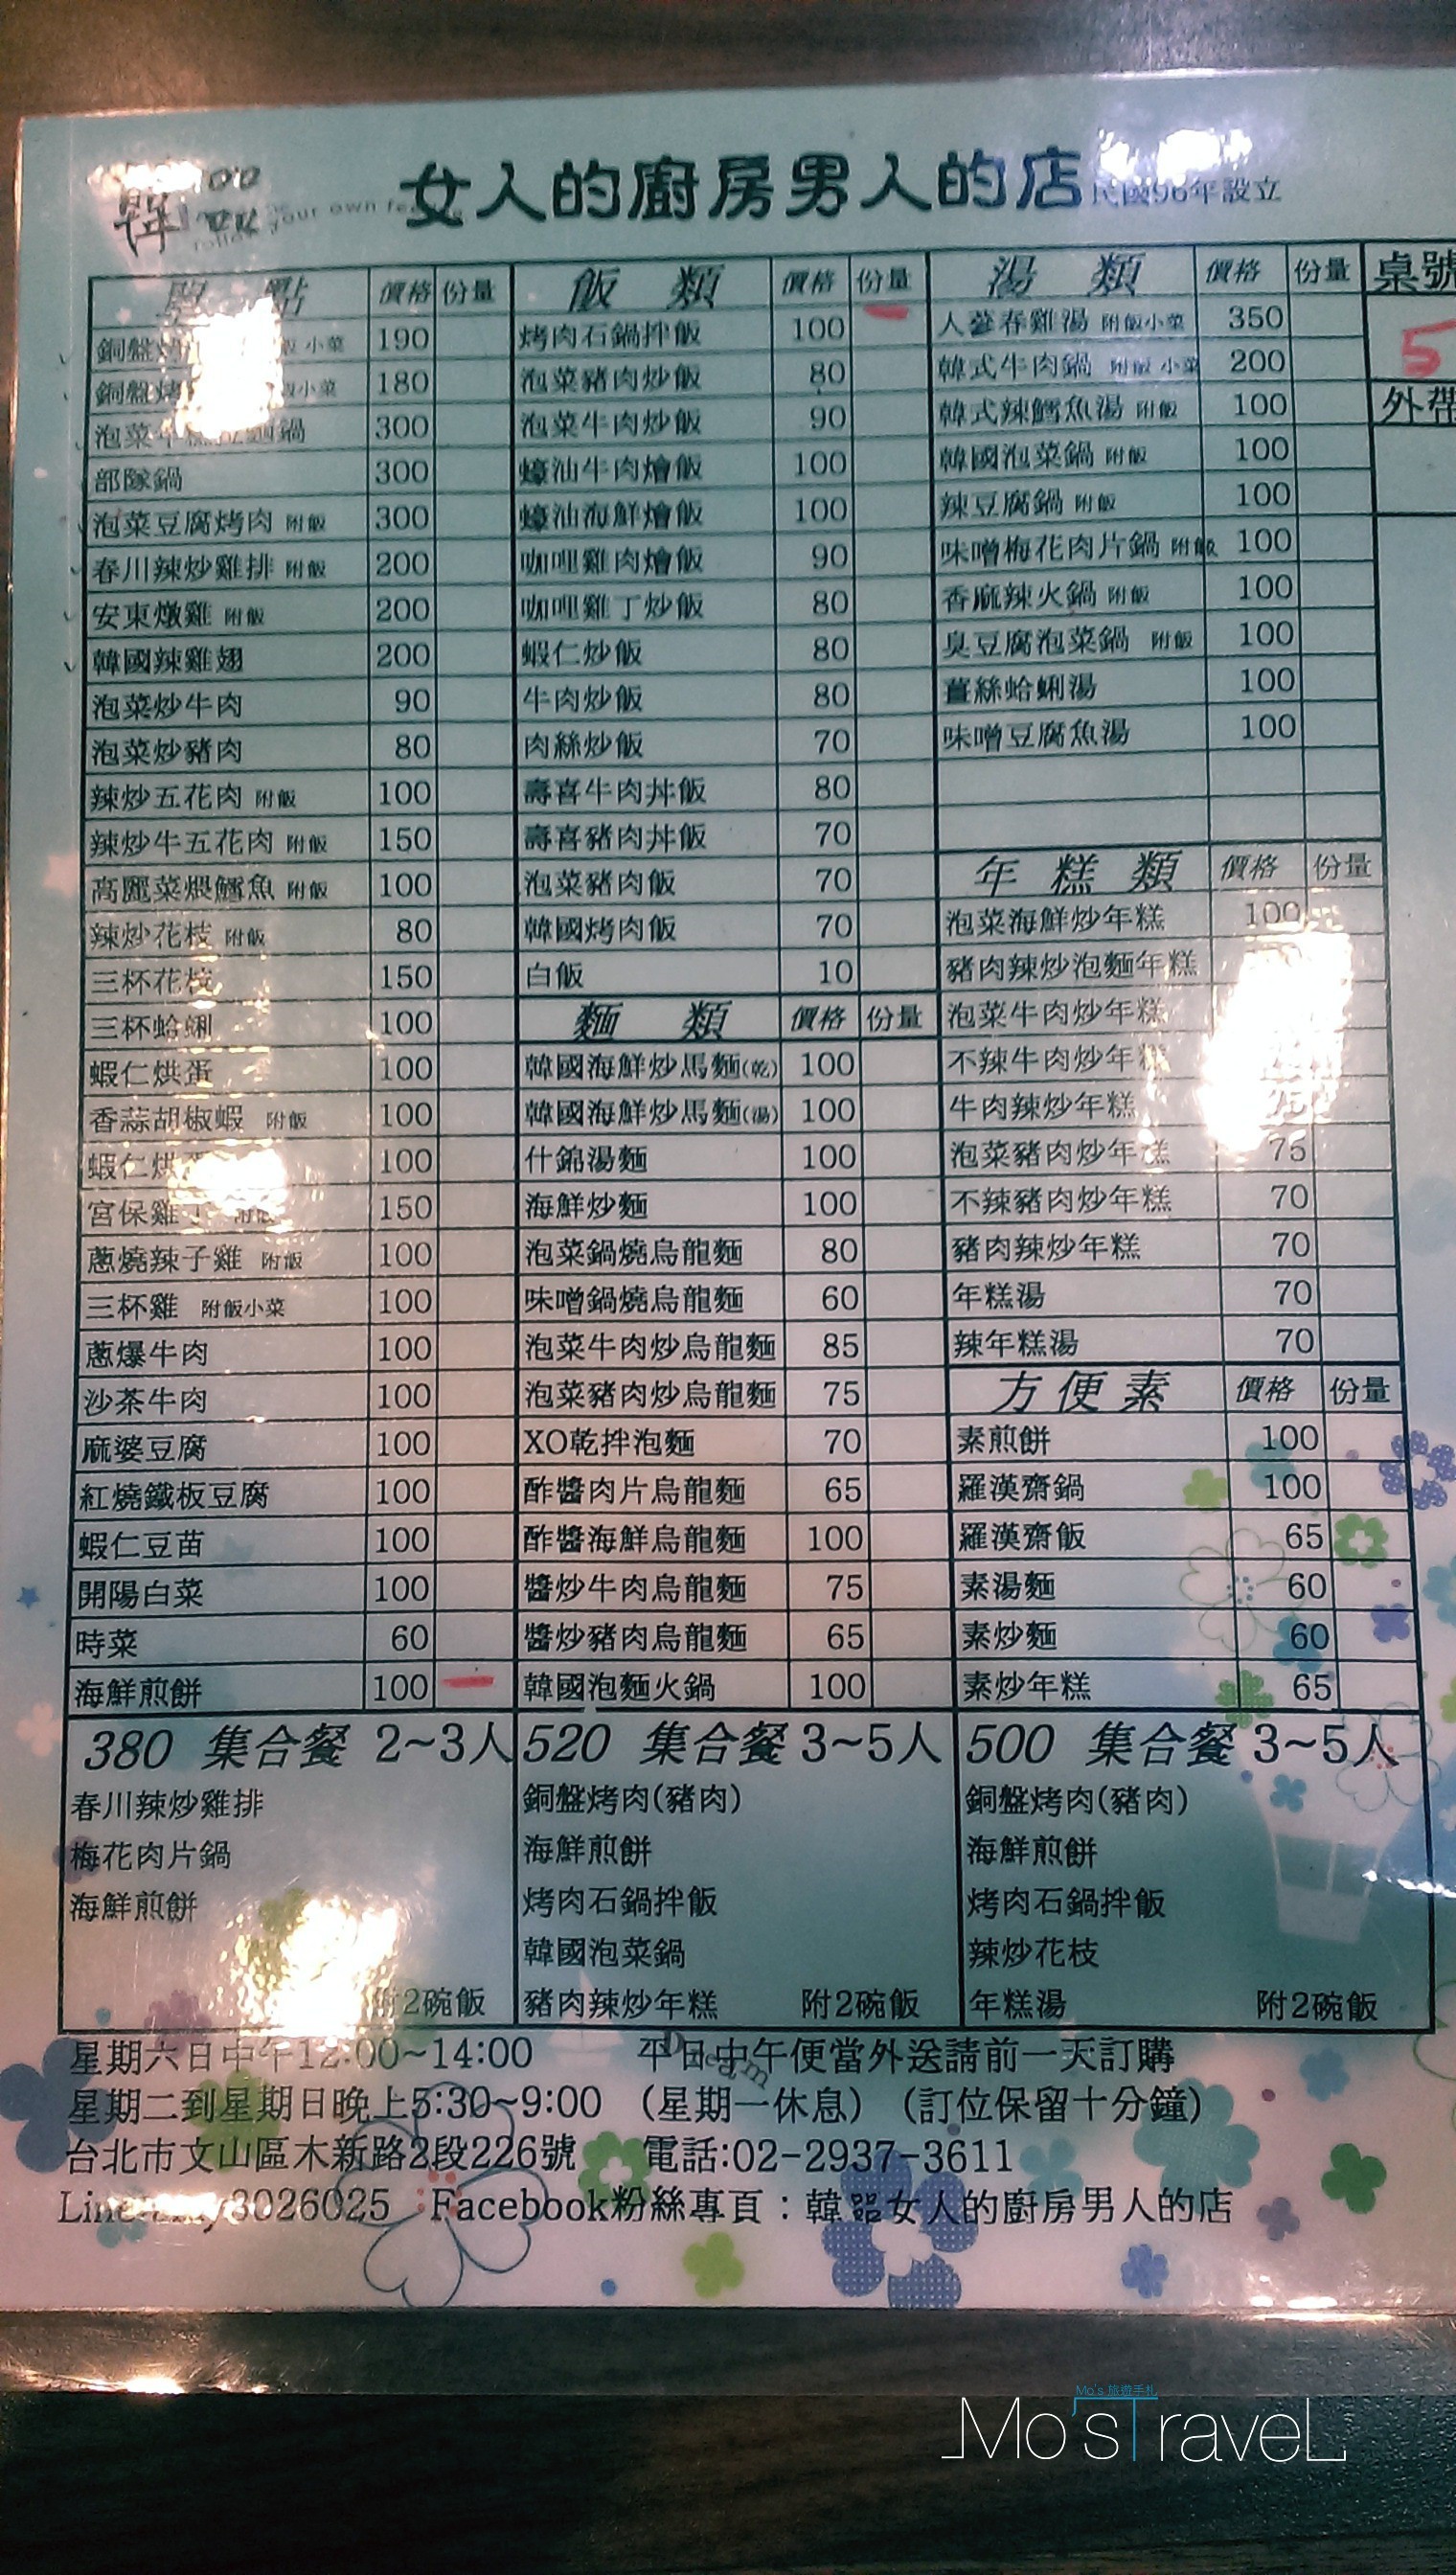 韓 follow your own
女人的廚房男人的店 民國96年設立
單 點 價格 份量
銅盤 飯 小菜 190
銅盤烤 小菜 180
泡菜年 鍋 300
部隊鍋 300
泡菜豆腐烤肉 附飯 300
春川辣炒雞排 附飯 200
安東燉雞 附飯 200
韓國辣雞翅 200
泡菜炒牛肉 90
泡菜炒豬肉 80
辣炒五花肉 附飯 100
辣炒牛五花肉 附飯 150
高麗菜煨鱈魚 附飯 100
辣炒花枝 附飯 80
三杯花枝 150
三杯蛤蜊 100
蝦仁烘蛋 100
香蒜胡椒蝦 附飯 100
蝦仁烘 100
宮保雞丁 附飯 150
蔥燒辣子雞 附飯 100
三杯雞 附飯小菜 100
蔥爆牛肉 100
沙茶牛肉 100
麻婆豆腐 100
紅燒鐵板豆腐 100
蝦仁豆苗 100
開陽白菜 100
時菜 60
海鮮煎餅 100
飯 類 價格 份量
烤肉石鍋拌飯 100
泡菜豬肉炒飯 80
泡菜牛肉炒飯 90
蠔油牛肉燴飯 100
蠔油海鮮燴飯 100
咖哩雞肉燴飯 90
咖哩雞丁炒飯 80
蝦仁炒飯 80
牛肉炒飯 80
肉絲炒飯 70
壽喜牛肉丼飯 80
壽喜豬肉丼飯 70
泡菜豬肉飯 70
韓國烤肉飯 70
白飯 10
麵 類 價格 份量
韓國海鮮炒馬麵(乾) 100
韓國海鮮炒馬麵(湯) 100
什錦湯麵 100
海鮮炒麵 100
泡菜鍋燒烏龍麵 80
味噌鍋燒烏龍麵 60
泡菜牛肉炒烏龍麵 85
泡菜豬肉炒烏龍麵 75
XO乾拌泡麵 70
酢醬肉片烏龍麵 65
酢醬海鮮烏龍麵 100
醬炒牛肉烏龍麵 75
醬炒豬肉烏龍麵 65
韓國泡麵火鍋 100
湯 類 價格 份量
人蔘春雞湯 附飯小菜 350
韓式牛肉鍋 附飯 小菜 200
韓式辣鱈魚湯 附飯 100
韓國泡菜鍋 附飯 100
辣豆腐鍋 附飯 100
味噌梅花肉片鍋 附飯 100
香麻辣火鍋 附飯 100
臭豆腐泡菜鍋 附飯 100
薑絲蛤蜊湯 100
味噌豆腐魚湯 100
年 糕 類 價格 份量
泡菜海鮮炒年糕 100
豬肉辣炒泡麵年糕
泡菜牛肉炒年糕
不辣牛肉炒年糕
牛肉辣炒年糕 75
泡菜豬肉炒年糕 75
不辣豬肉炒年糕 70
豬肉辣炒年糕 70
年糕湯 70
辣年糕湯 70
方 便 素 價格 份量
素煎餅 100
羅漢齋鍋 100
羅漢齋飯 65
素湯麵 60
素炒麵 60
素炒年糕 65
桌號
5
外帶
380 集合餐 2~3人
春川辣炒雞排
梅花肉片鍋
海鮮煎餅
附2碗飯
520 集合餐 3~5人
銅盤烤肉(豬肉)
海鮮煎餅
烤肉石鍋拌飯
韓國泡菜鍋
豬肉辣炒年糕 附2碗飯
500 集合餐 3~5人
銅盤烤肉(豬肉)
海鮮煎餅
烤肉石鍋拌飯
辣炒花枝
年糕湯 附2碗飯
星期六日中午12:00~14:00 平日中午便當外送請前一天訂購
Dream
星期二到星期日晚上5:30~9:00 (星期一休息) (訂位保留十分鐘)
台北市文山區木新路2段226號 電話:02-2937-3611
Line: 3026025 Facebook粉絲專頁：韓器女人的廚房男人的店
Mo's 旅遊手札
Mo'sTraveL